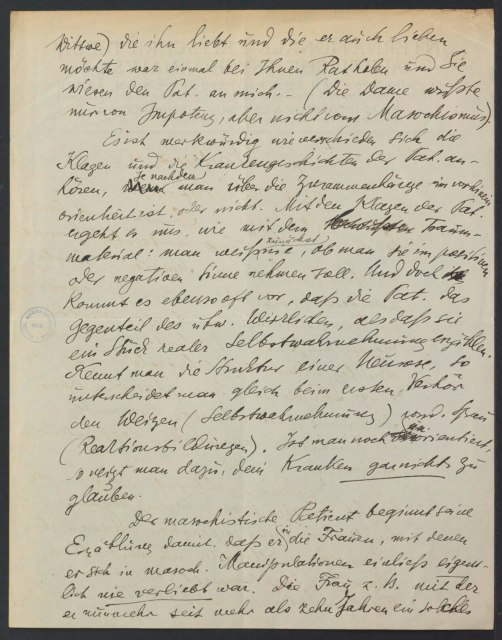 Wittwe) die ihn liebt und die er auch lieben
möchte war einmal bei Ihnen Rat holen und Sie
wiesen den Pat. an mich. – (Die Dame wusste
nur von Impotenz, aber nicht vom Masochismus).
Es ist merkwürdig wie verschieden sich die
Klagen und die Krankengeschichten der Pat. an-
hören, je nachdem man über die Zusammenhänge im vorhinein
orientiert ist, oder nicht. Mit den Klagen der Pat.
ergeht es uns, wie mit dem Traum-
material: man weiss nie, zunächst ob man sie im positiven
oder negativen Sinne nehmen soll. Und doch
kommt es ebenso oft vor, dass die Pat. das
Gegenteil des ubw. Wirklichen, als dass sie
ein Stück realer Selbstwahrnehmung erzählen.
Kennt man die Struktur einer Neurose, so
unterscheidet man gleich beim ersten Verhör
den Weizen (Selbstwahrnehmung) von d. Spreu
(Reaktionsbildungen). Ist man noch unorientiert,
so neigt man dazu, dem Kranken garnichts zu
glauben.
Der masochistische Patient beginnt seine
Erzählung damit, dass er in die Frauen, mit denen
er sich in masoch. Manipulationen einliess eigent-
lich nie verliebt war. Die Frau z. B. mit der
er nunmehr seit mehr als zehn Jahren ein solches